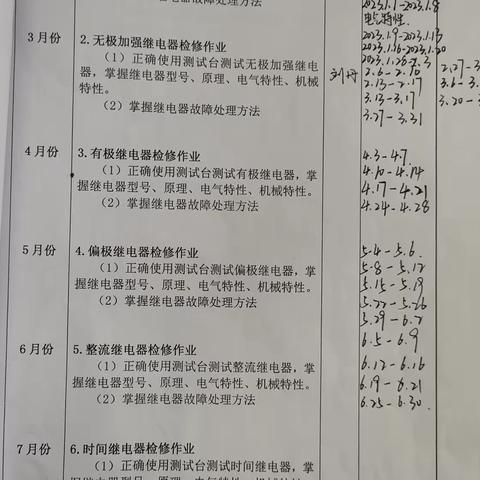 继电器故障处理方法
2023.1.1-2023.1.8
电气特性.
2023.1.9-2023.1.13
2023.1.16-2023.1.20
3月份
2.无极加强继电器检修作业
（1）正确使用测试台测试无极加强继电
器，掌握继电器型号、原理、电气特性、机械
特性。
（2）掌握继电器故障处理方法
2.6-2.10
2.13-2.17
3.13-3.17
3.27-3.31
2.27-3
3.6-3.
3.20-3
4月份
3.有极继电器检修作业
（1）正确使用测试台测试有极继电器，掌
握继电器型号、原理、电气特性、机械特性。
（2）掌握继电器故障处理方法
4.3-4.7.
4.10-4.14
4.17-4.21
4.24-4.28
5月份
4.偏极继电器检修作业
（1）正确使用测试台测试偏极继电器，掌
握继电器型号、原理、电气特性、机械特性。
（2）掌握继电器故障处理方法
5.4-5.6.
5.8-5.12
5.15-5.19
5.22-5.26
5.29-6.2
6月份
5.整流继电器检修作业
（1）正确使用测试台测试整流继电器，掌
握继电器型号、原理、电气特性、机械特性。
（2）掌握继电器故障处理方法
6.5-6.9
6.12-6.16
6.19-6.21
6.25-6.30.
7月份
6.时间继电器检修作业
（1）正确使用测试台测试时间继电器，掌
握继电器型号、原理、电气特性、机械特性。